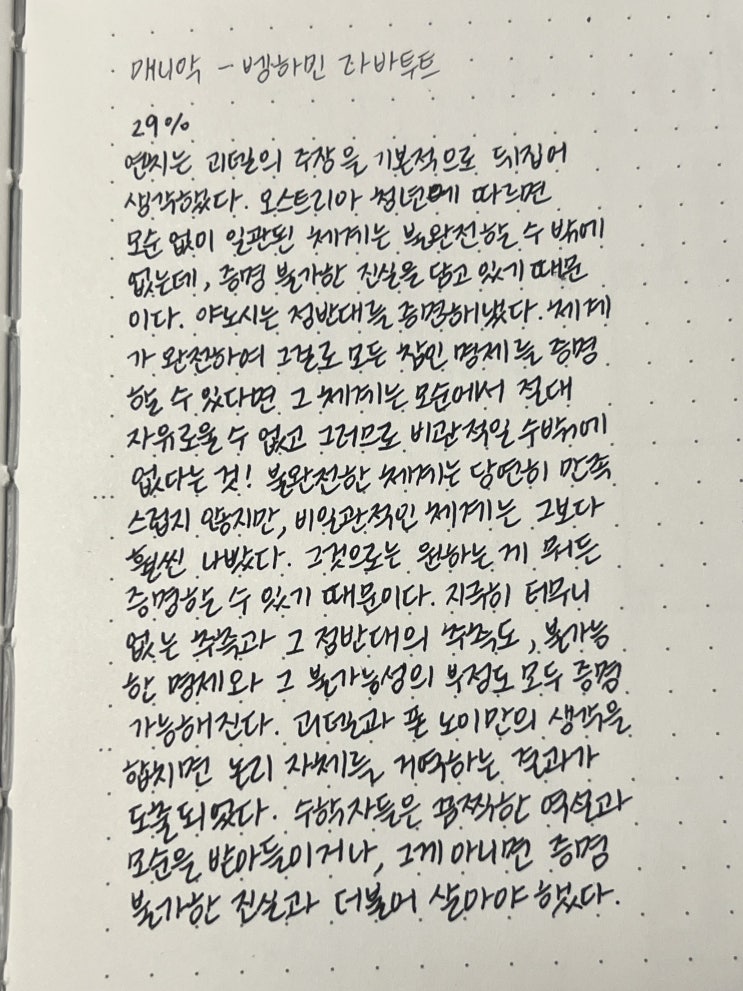 매니악 - 벵하민 라바투트
29%
얀치는 괴델의 주장을 기본적으로 뒤집어
생각했다. 오스트리아 청년에 따르면
모순 없이 일관된 체계는 불완전할 수 밖에
없는데, 증명 불가한 진실을 담고 있기 때문
이다. 야노시는 정반대를 증명해냈다. 체계
가 완전하여 그걸로 모든 참인 명제를 증명
할 수 있다면 그 체계는 모순에서 절대
자유로울 수 없고 그러므로 비관적일 수밖에
없다는 것! 불완전한 체계는 당연히 만족
스럽지 않지만, 비일관적인 체계는 그보다
훨씬 나빴다. 그것으로는 원하는 게 뭐든
증명할 수 있기 때문이다. 지극히 터무니
없는 추측과 그 정반대의 추측도, 불가능
한 명제와 그 불가능성의 부정도 모두 증명
가능해진다. 괴델과 폰 노이만의 생각을
합치면 논리 자체를 거역하는 결과가
도출되었다. 수학자들은 끔찍한 역설과
모순을 받아들이거나, 그게 아니면 증명
불가한 진실과 더불어 살아야 했다.